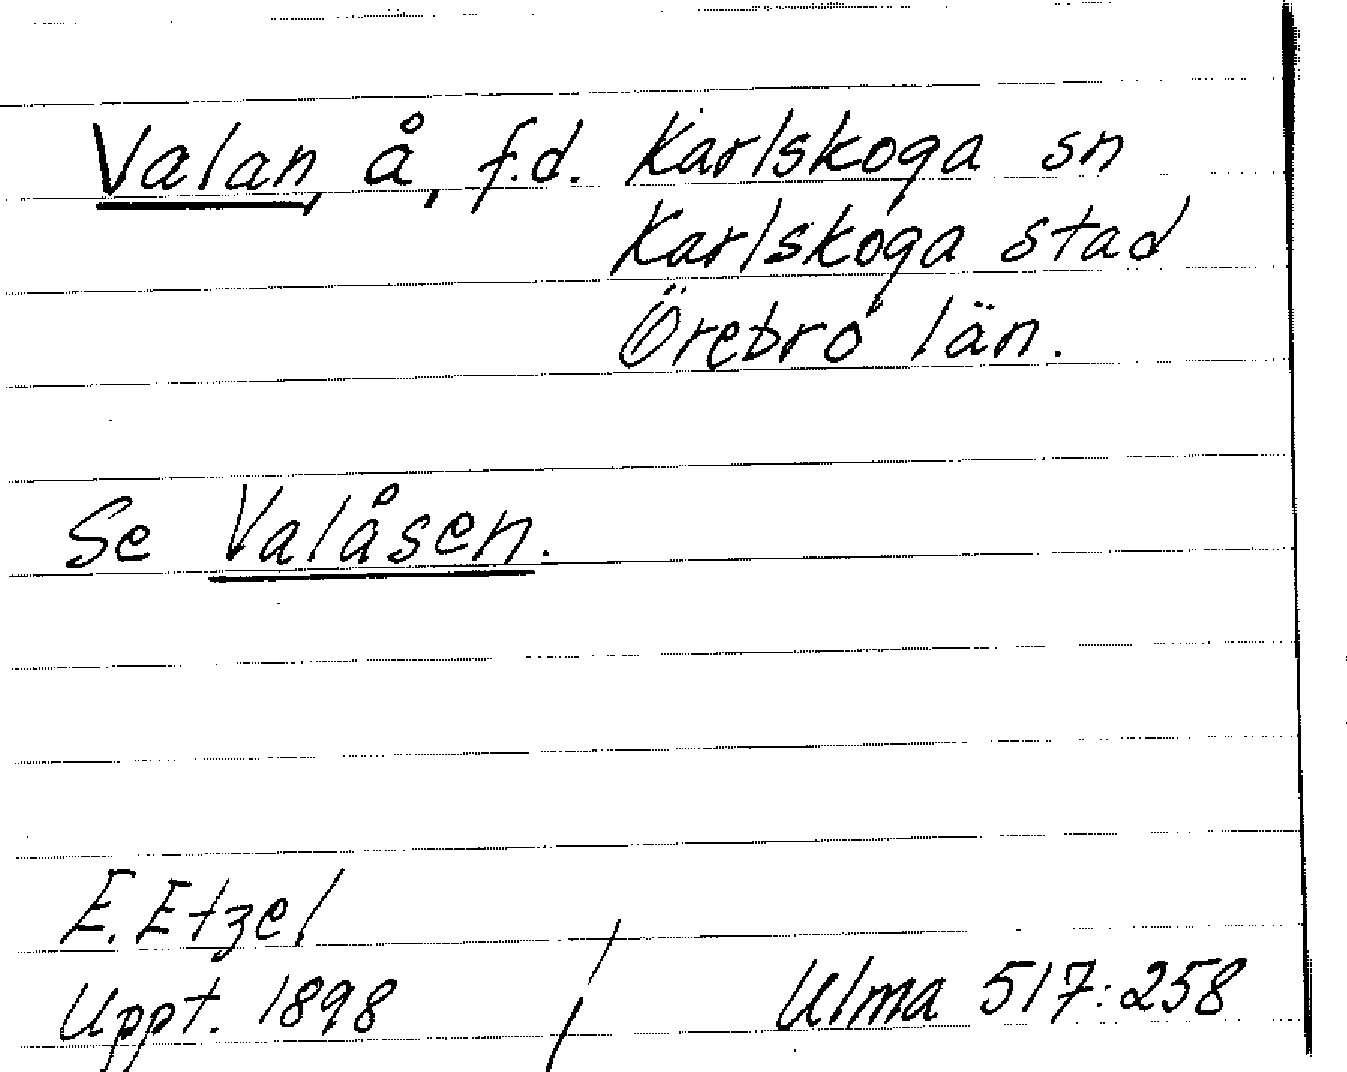 Valan, å, f.d. Karlskoga sn
Karlskoga stad
Örebro län.
Se Valåsen.
E. Etzel
Uppt. 1898 / Ulma 517:258